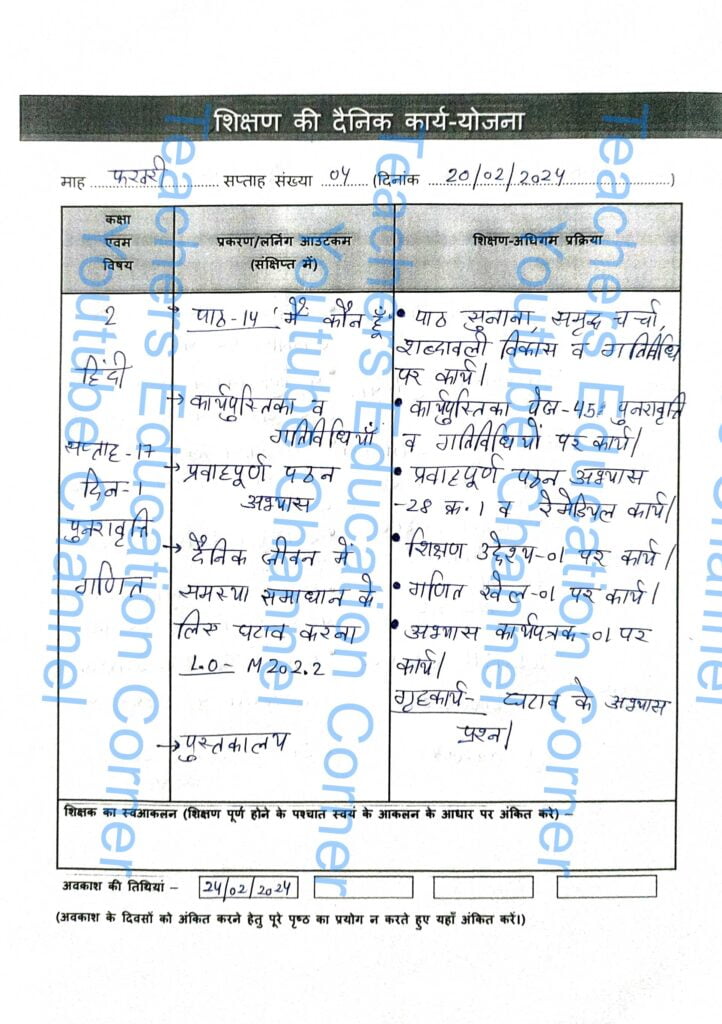 शिक्षण की दैनिक कार्य-योजना
माह फरवरी सप्ताह संख्या 04 (दिनांक 20/02/2024)
कक्षा
एवम
विषय
प्रकरण/लर्निंग आउटकम
(संक्षिप्त में)
शिक्षण-अधिगम प्रक्रिया
2
हिंदी
सप्ताह-17
दिन-1
पुनरावृत्ति
गणित
→ पाठ-14 'मैं कौन हूँ'
→ कार्यपुस्तिका व
गतिविधियाँ
→ प्रवाहपूर्ण पठन
अभ्यास
→ दैनिक जीवन में
समस्या समाधान के
लिए घटाव करना
L.O- M202.2
→ पुस्तकालय
• पाठ सुनाना, समृद्ध चर्चा,
शब्दावली विकास व गतिविधि
पर कार्य।
• कार्यपुस्तिका पेज-45, पुनरावृत्ति
व गतिविधियों पर कार्य।
• प्रवाहपूर्ण पठन अभ्यास
-28 क्र.1 व रेमेडियल कार्य।
• शिक्षण उद्देश्य-01 पर कार्य।
• गणित खेल-01 पर कार्य।
• अभ्यास कार्यपत्रक-01 पर
कार्य।
गृहकार्य- घटाव के अभ्यास
प्रश्न।
शिक्षक का स्वआकलन (शिक्षण पूर्ण होने के पश्चात स्वयं के आकलन के आधार पर अंकित करें) –
अवकाश की तिथियां – 24/02/2024
(अवकाश के दिवसों को अंकित करने हेतु पूरे पृष्ठ का प्रयोग न करते हुए यहाँ अंकित करें।)
Teachers Education Corner
Youtube Channel
Teachers Education Corner
Youtube Channel
Teachers Education Corner
Youtube Channel